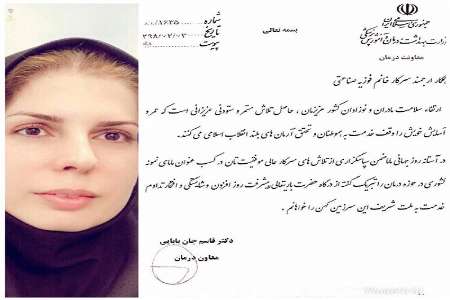 جمهوری اسلامی ایران
وزارت بهداشت، درمان و آموزش پزشکی
معاونت درمان
بسمه تعالی
شماره
تاریخ
پیوست
همکار ارجمند سرکار خانم فوزیه صناعتی
ارتقاء سلامت مادران و نوزادان کشور عزیزمان، حاصل تلاش مستمر و ستودنی عزیزانی است که عمر و
آسایش خویش را وقف خدمت به هموطنان و تحقق آرمان های بلند انقلاب اسلامی می کنند.
در آستانه روز جهانی ماما ضمن سپاسگزاری از تلاش های سرکار عالی موفقیت تان در کسب عنوان مامای نمونه
کشوری در حوزه درمان را تبریک گفته از درگاه حضرت باریتعالی پیشرفت روز افزون و شایستگی و افتخار تداوم
خدمت به ملت شریف این سرزمین کهن را خواهانم.
دکتر قاسم جان بابایی
معاون درمان